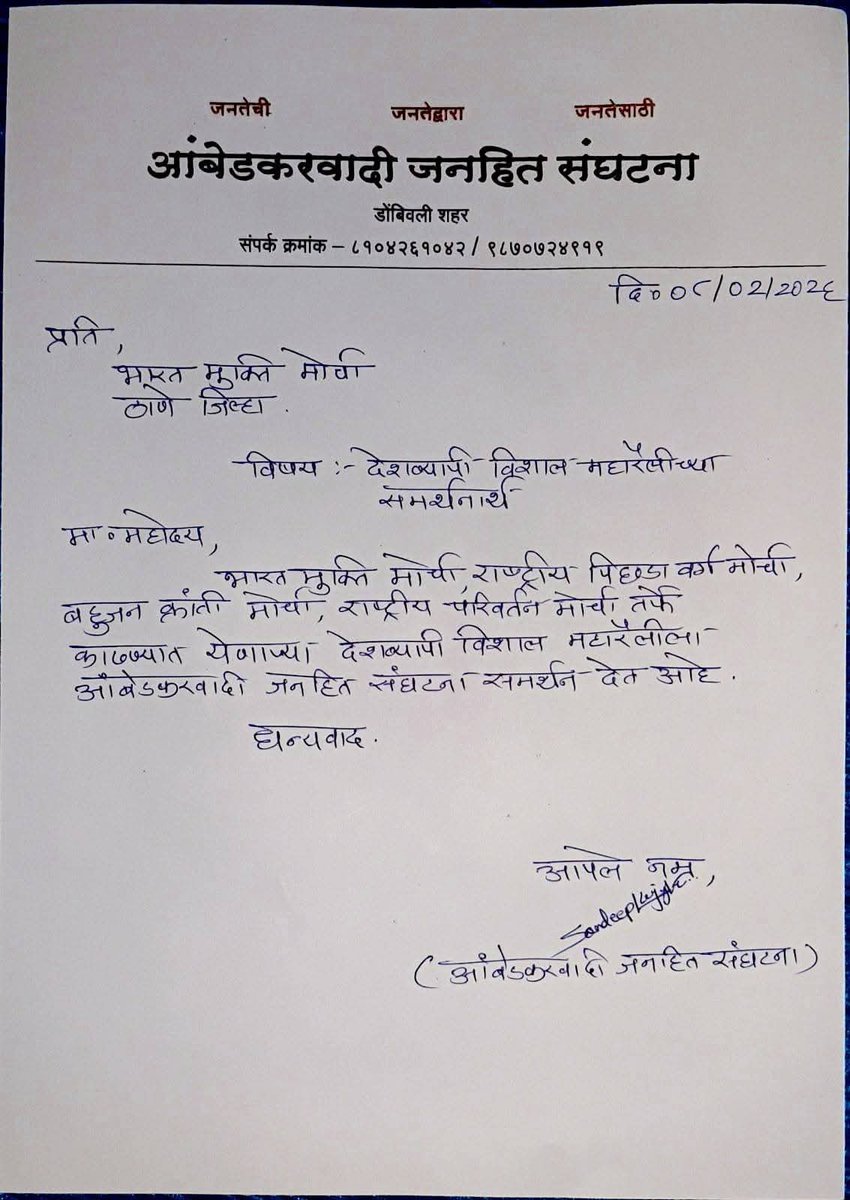 जनतेची जनतेद्वारा जनतेसाठी
आंबेडकरवादी जनहित संघटना
डोंबिवली शहर
संपर्क क्रमांक – ८१०४२६१०४२ / ९८७०७२४९१९
दि००८/०२/२०२६
प्रति,
भारत मुक्ति मोर्चा
ठाणे जिल्हा.
विषय :- देशव्यापी विशाल महारैलीच्या
समर्थनार्थ
मा॰महोदय,
भारत मुक्ति मोर्चा, राष्ट्रीय पिछडा वर्ग मोर्चा,
बहुजन क्रांती मोर्चा, राष्ट्रीय परिवर्तन मोर्चा तर्फे
काढण्यात येणाऱ्या देशव्यापी विशाल महारैलीला
आंबेडकरवादी जनहित संघटना समर्थन देत आहे.
धन्यवाद.
आपले नम्र,
Sandeep
(आंबेडकरवादी जनहित संघटना)